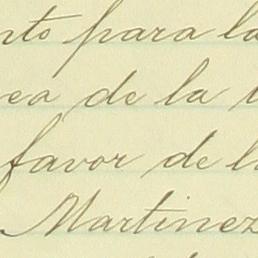 nto para la
ea de la
favor de l
Martinez